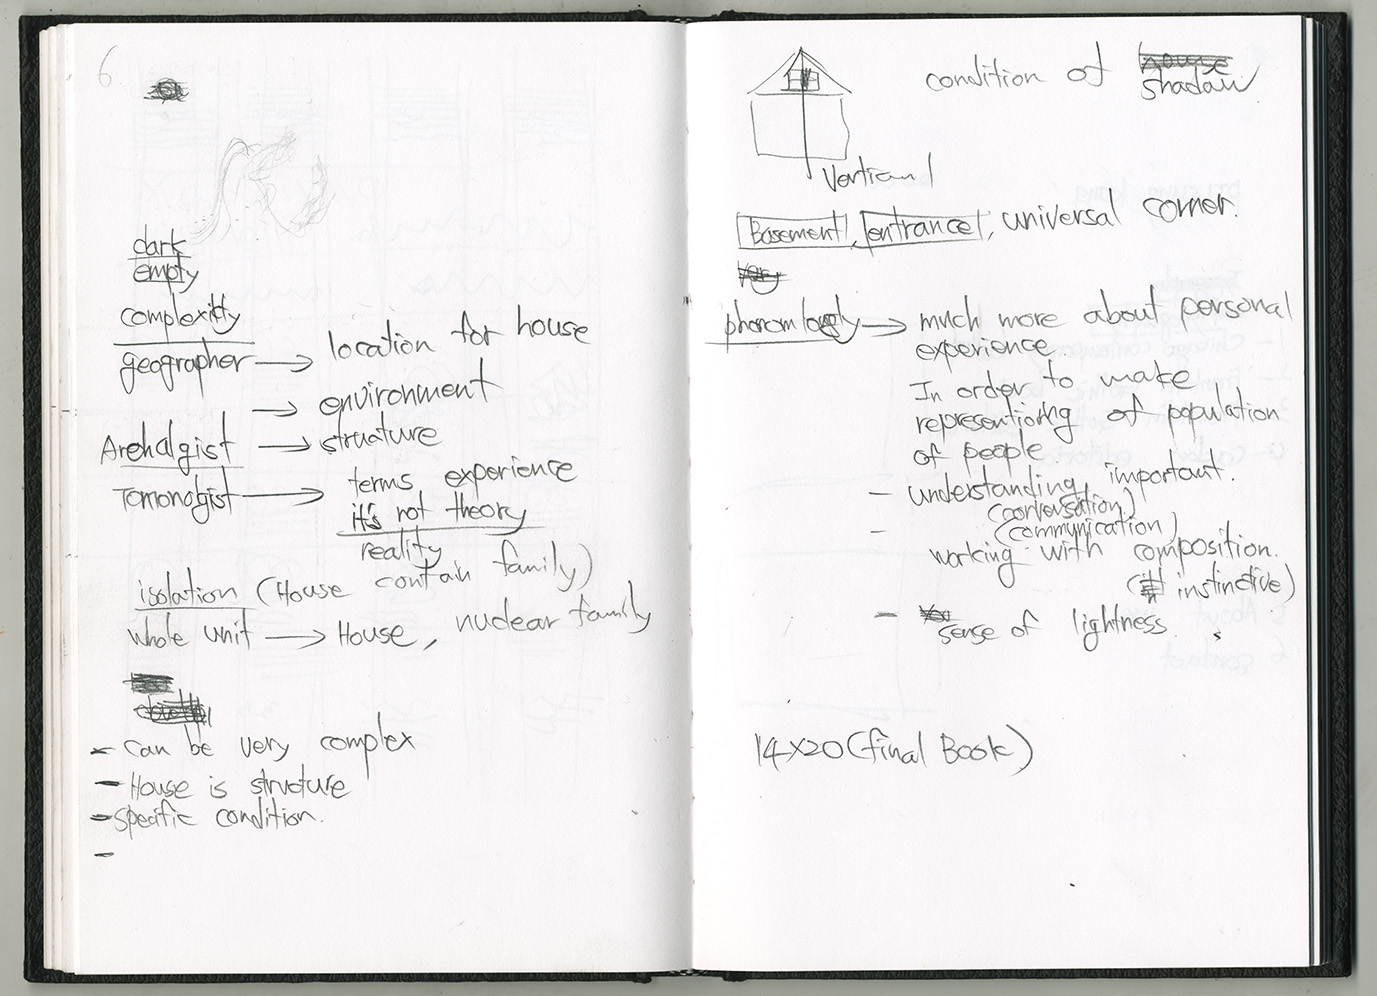 6.
dark
empty
complexity
geographer → location for house
→ environment
Archalgist → structure
Tomonolgist → terms experience
it's not theory
reality
isolation (House contain family)
whole unit → House, nuclear family
- can be very complex
- House is structure
- Specific condition.
-
condition of house
shadow
Vertical
Basement, entrance, universal corner.
Very
→ much more about personal
experience.
In order to make
representioning of population
of people.
- understanding, important.
(conversation)
- (communication)
working with composition.
(instinctive)
- sense of lightness.
14x20 (final Book)